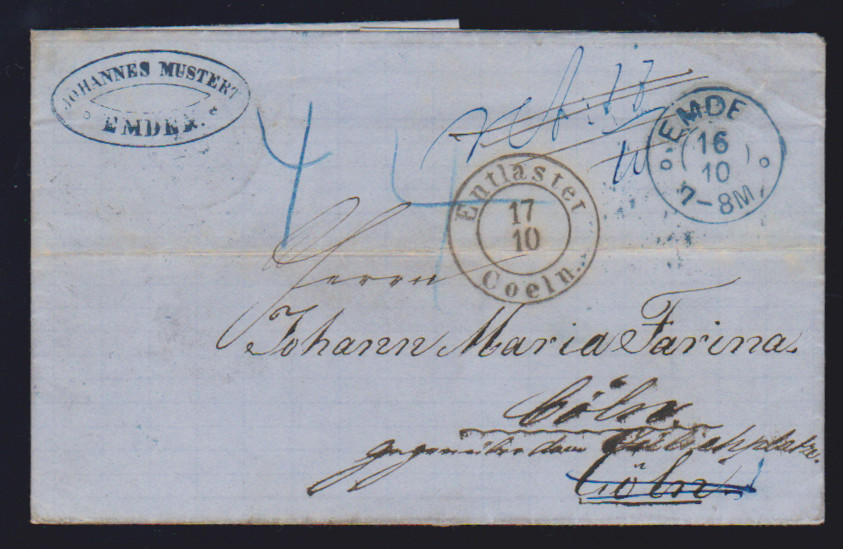 JOHANNES MUSTERT
EMDEN.
4
4
EMDE
16
10
7-8M
Entlaster
17
10
Coeln.
Herrn
Johann Maria Farina.
Cöln.
gegenüber dem Jülichsplatz.
Cöln